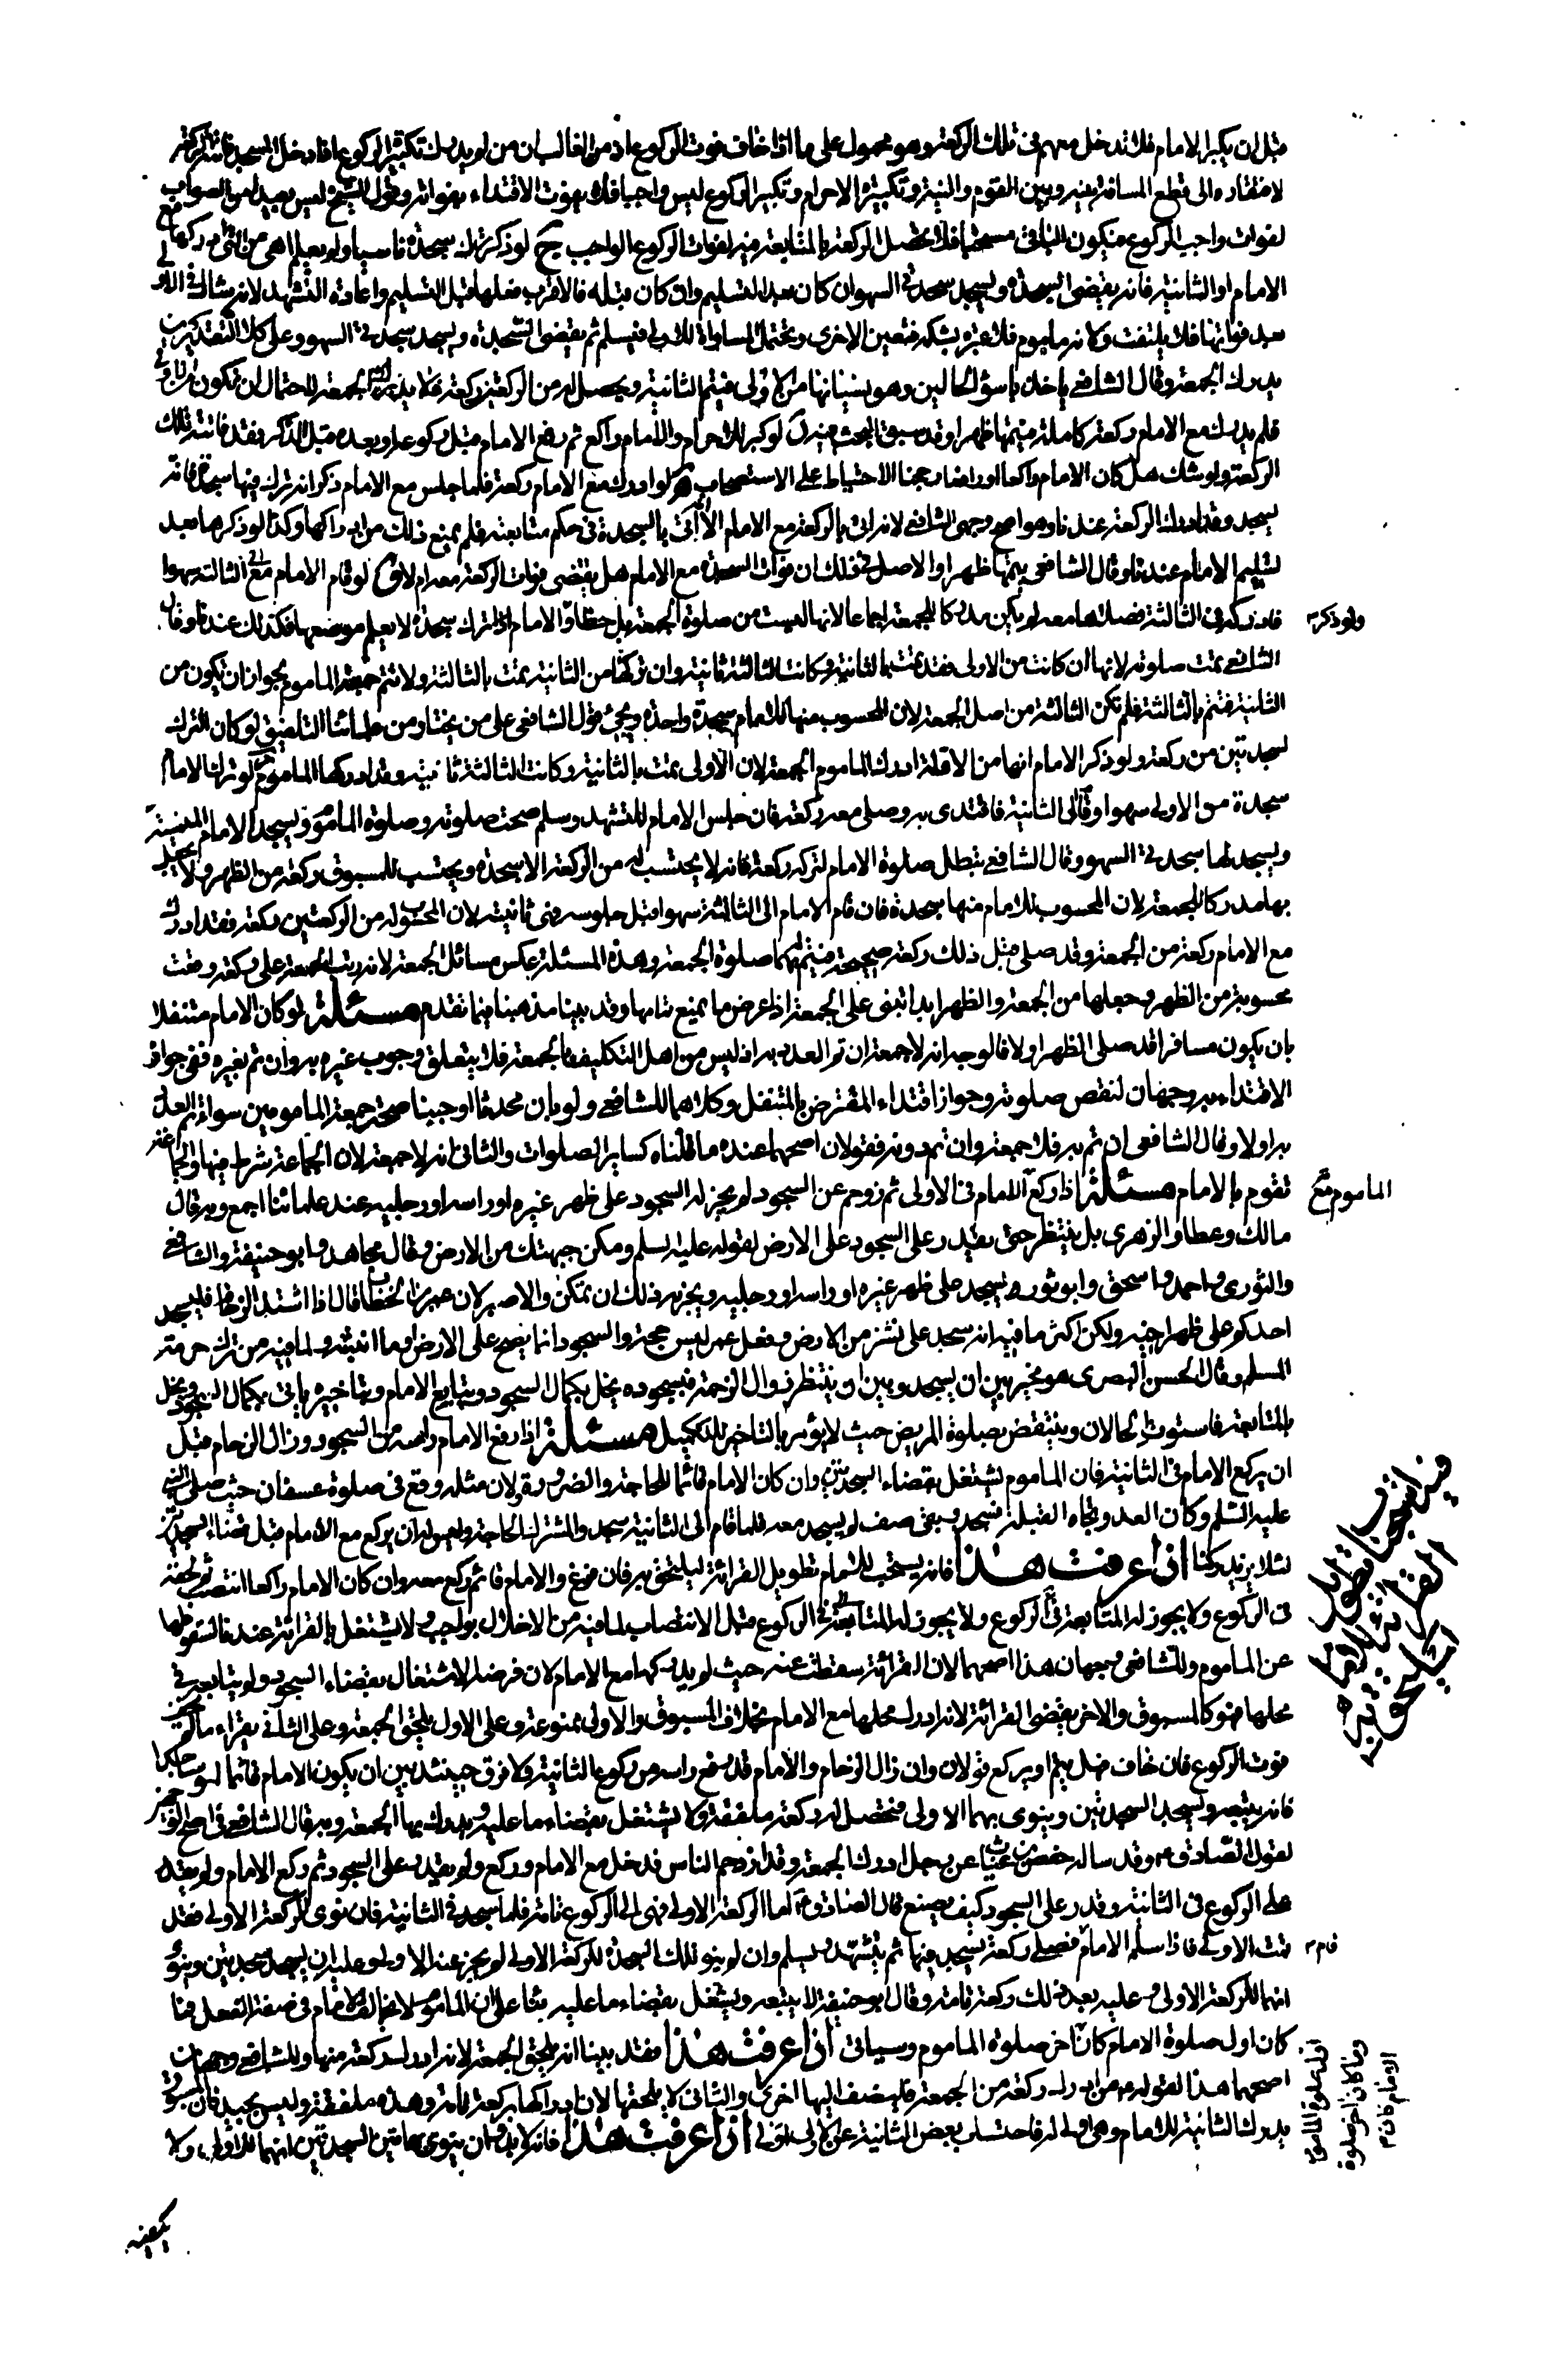 قبل ان يكبر الامام فلا تدخل معهم فى تلك الركعة وهو محمول على ما اذا خاف فوت الركوع اذ من الغالب ان من لو يدرك تكبيرة الركوع اذا دخل المسجد فاتته الركعة
لافتقاره الى قطع المسافة بينه وبين القوم والنية وتكبيرة الاحرام وتكبير الركوع ليس واجبا فلا يفوت الاقتداء بفواته وقول الشيخ ليس بعيدا من الصواب
لفوات واجب الركوع فيكون الباقى مستحبا فلا تحصل الركعة بالمتابعة فيه لفوات الركوع الواجب ج لو ذكر ترك سجدة ناسيا ولو يعلم اهى من التى ادركها مع
الامام او الثانية فانه يقضى السجدة ويسجد سجدتى السهو ان كان بعد التسليم وان كان قبله فالاقرب فعلها قبل التسليم واعادة التشهد لانه شاك فى الاولى
بعد فواتها فلا يلتفت ولانه ماموم فلا عبرة بشكه فتعين الاخرى ويحتمل المساواة للاولى فيسلم ثم يقضى السجدة ويسجد سجدتى السهو وعلى كلا التقديرين
يدرك الجمعة وقال الشافعى ياخذ باسوء الحالين وهو نسيانها من الاولى فيتم الثانية ويحصل له من الركعتين ركعة فلا يدرك به الجمعة لاحتمال ان تكون من الاولى
فلم يدرك مع الامام ركعة كاملة فيتمها ظهرا وقد سبق البحث فيه لو كبر للاحرام والامام راكع ثم رفع الامام قبل ركوعه او بعده قبل الذكر فقد فاتته تلك
الركعة ولو شك هل كان الامام راكعا او رافعا رجحنا الاحتياط على الاستصحاب لو ادرك مع الامام ركعة فلما جلس مع الامام ذكر انه ترك فيها سجدة فانه
يسجد وقد ادرك الركعة عندنا وهو اصح وجهى الشافعى لانه اتى بالركعة مع الامام الا انه اتى بالسجدة فى حكم متابعته فلم يمنع ذلك من ادراكها وكذا لو ذكرها بعد
تسليم الامام عندنا وقال الشافعى يتمها ظهرا والاصل فى ذلك ان فوات السجدة مع الامام هل يقتضى فوات الركعة معه ام لا لو قام الامام الى الثالثة سهوا
فادركه فى الثالثة فصلاها معه لم يكن مدركا للجمعة اجماعا لانها ليست من صلوة الجمعة بل خطا والامام اذا ترك سجدة لا يعلم موضعها فكذلك عندنا وقال
ولو ذكر
الشافعى تمت صلوته لانها ان كانت من الاولى فقد تمت بالثانية وكانت الثالثة ثانية وان تركها من الثانية تمت بالثالثة ولا تتم جمعة الماموم لجواز ان تكون من
الثانية فتتم بالثالثة فلم تكن الثالثة من اصل الجمعة لان المحسوب منها للامام سجدة واحدة ويجئ قول الشافعى على من يختار من علمائنا التلفيق لو كان الترك
لسجدتين من ركعة ولو ذكر الامام انها من الاولة ادرك الماموم الجمعة لان الاولى تمت بالثانية وكانت الثالثة ثانية وقد ادركها الماموم لو ترك الامام
سجدة من الاولى سهوا وقام الى الثانية فاقتدى به وصلى معه ركعة فان جلس الامام للتشهد وسلم صحت صلوته وصلوة الماموم ويسجد الامام المنسية
ويسجد لها سجدتى السهو وقال الشافعى تبطل صلوة الامام لتركه ركعة فانه لا يحتسب له من الركعة الا سجدة ويحتسب للمسبوق ركعة من الظهر ولا يصير
بها مدركا للجمعة لان المحسوب للامام منها سجدة فان قام الامام الى الثالثة سهوا قبل جلوسه فهى ثانيته لان المحسوب له من الركعتين ركعة فقد ادرك
مع الامام ركعة من الجمعة وقد صلى قبل ذلك ركعة صحيحة فيتم بهما صلوة الجمعة وهذه المسئلة عكس مسائل الجمعة لانه رتب الجمعة على ركعة وقعت
محسوبة من الظهر وجعلها من الجمعة والظهر ابدا تبنى على الجمعة اذا عرض ما يمنع تمامها وقد بينا مذهبنا فيما تقدم مسئلة لو كان الامام متنفلا
بان يكون مسافرا قد صلى الظهر اولا فالوجه انه لا جمعة ان تم العدد به اذ ليس من اهل التكليف بالجمعة فلا يتعلق وجوب غيره به وان تم بغيره ففى جواز
الاقتداء به وجهان لنقص صلوته وجواز اقتداء المفترض بالمتنفل وكلاهما للشافعى ولو بان محدثا اوجبنا صحة جمعة المامومين سواء تم العدد
به او لا وقال الشافعى ان تم به فلا جمعة وان تم دونه فقولان اصحهما عنده ما قلناه كساير الصلوات والثانى انه لا جمعة لان الجماعة شرط فيها والجماعة
تقوم بالامام مسئلة اذا ركع الامام فى الاولى ثم زوحم عن السجود لم يجز له السجود على ظهر غيره او راسه او رجليه عند علمائنا اجمع وبه قال
الماموم مع
مالك وعطا والزهرى بل ينتظر حتى يقدر على السجود على الارض لقوله عليه السلم ومكن جبهتك من الارض وقال مجاهد وابو حنيفة والشافعى
والثورى واحمد واسحق وابو ثور يسجد على ظهر غيره او راسه او رجليه ويجزيه ذلك ان تمكن والا صبر لان عمر بن الخطاب قال اذا اشتد الزحام فليسجد
احدكم على ظهر اخيه ولكن اكثر ما فيه انه سجد على نشز من الارض وفعل عمر ليس حجة والسجود انما يصح على الارض او ما انبتته ولما فيه من ترك حرمة
المسلم وقال الحسن البصرى هو مخير بين ان يسجد وبين ان ينتظر زوال الزحمة فبسجوده يخل بكمال السجود ويتابع الامام وبتاخيره ياتى بكمال السجود ويخل
بالمتابعة فاستوت الحالان وينتقض بصلوة المريض حيث لا يؤمر بالتاخير للتكميل مسئلة اذا رفع الامام راسه من السجود وزال الزحام قبل
ان يركع الامام فى الثانية فان الماموم يشتغل بقضاء السجدتين وان كان الامام قائما للحاجة والضرورة ولان مثله وقع فى صلوة عسفان حيث صلى النبى
عليه السلم وكان العدو تجاه القبلة فسجد وبقى صف لم يسجد معه فلما قام الى الثانية سجد والمشترك الحاجة وليس له ان يركع مع الامام قبل قضاء السجدتين
لئلا يزيد ركنا اذا عرفت هذا فانه يستحب للامام تطويل القرائة ليلتحق به فان فرغ والامام قائم ركع معه وان كان الامام راكعا انتصب ثم لحقه
فى الركوع ولا يجوز له المتابعة فى الركوع ولا يجوز له المتابعة فى الركوع قبل الانتصاب لما فيه من الاخلال بواجب ولا يشتغل بالقرائة عندنا لسقوطها
عن الماموم وللشافعى وجهان هذا اصحهما لان القرائة سقطت عنه حيث لم يدركها مع الامام لان فرضه الاشتغال بقضاء السجود ولم يتابعه فى
محلها فهو كالمسبوق والاخر يقضى القرائة لانه ادرك محلها مع الامام بخلاف المسبوق والاولى ممنوعة وعلى الاول يلحق الجمعة وعلى الثانى يقراء ما لم يخف
فوت الركوع فان خاف فهل يتم او يركع قولان وان زال الزحام والامام قد رفع راسه من ركوع الثانية ولا فرق حينئذ بين ان يكون الامام قائما او ساجدا
فانه يتبعه ويسجد السجدتين وينوى بهما الاولى فتحصل له ركعة ملفقة ولا يشتغل بقضاء ما عليه ويدرك بها الجمعة وبه قال الشافعى فى اصح الوجهين
لقول الصادق م وقد ساله حفص بن غياث عن رجل ادرك الجمعة وقد ازدحم الناس فدخل مع الامام وركع ولم يقدر على السجود ثم ركع الامام ولم يقدر
على الركوع فى الثانية وقدر على السجود كيف يصنع قال الصادق م اما الركعة الاولى فهى الى الركوع تامة فلما سجد فى الثانية فان نوى الركعة الاولى فقد
تمت الاولى فاذا سلم الامام فصلى ركعة يسجد فيها ثم يتشهد ويسلم وان لم ينو تلك السجدة للركعة الاولى لم يجز عنه الاولى وعليه ان يسجد سجدتين وينوى
قام
انهما للركعة الاولى وعليه بعد ذلك ركعة تامة وقال ابو حنيفة لا يتبعه ويشتغل بقضاء ما عليه بناء على ان الماموم لا يخالف الامام فى صفة الفعل فما
كان اول صلوة الامام كان اخر صلوة الماموم وسياتى اذا عرفت هذا فقد بينا انه يلحق الجمعة لانه ادرك ركعة منها وللشافعى وجهان
اصحهما هذا لقوله م من ادرك ركعة من الجمعة فليضف اليها اخرى والثانى لا يلحقها لان ادراكها بركعة تامة وهذه ملفقة وليس بجيد فان المسبوق
يدرك الثانية للامام وهى اولى له فاحتساب بعض الثانية عن الاولى اولى اذا عرفت هذا فانه لا بد وان ينوى بهاتين السجدتين انهما للاولى ولا
فيه استحباب تطويل القرائة للامام ليلحق به
اول صلوة الماموم
وما كان اخر صلوة
الامام كان
يكفيه